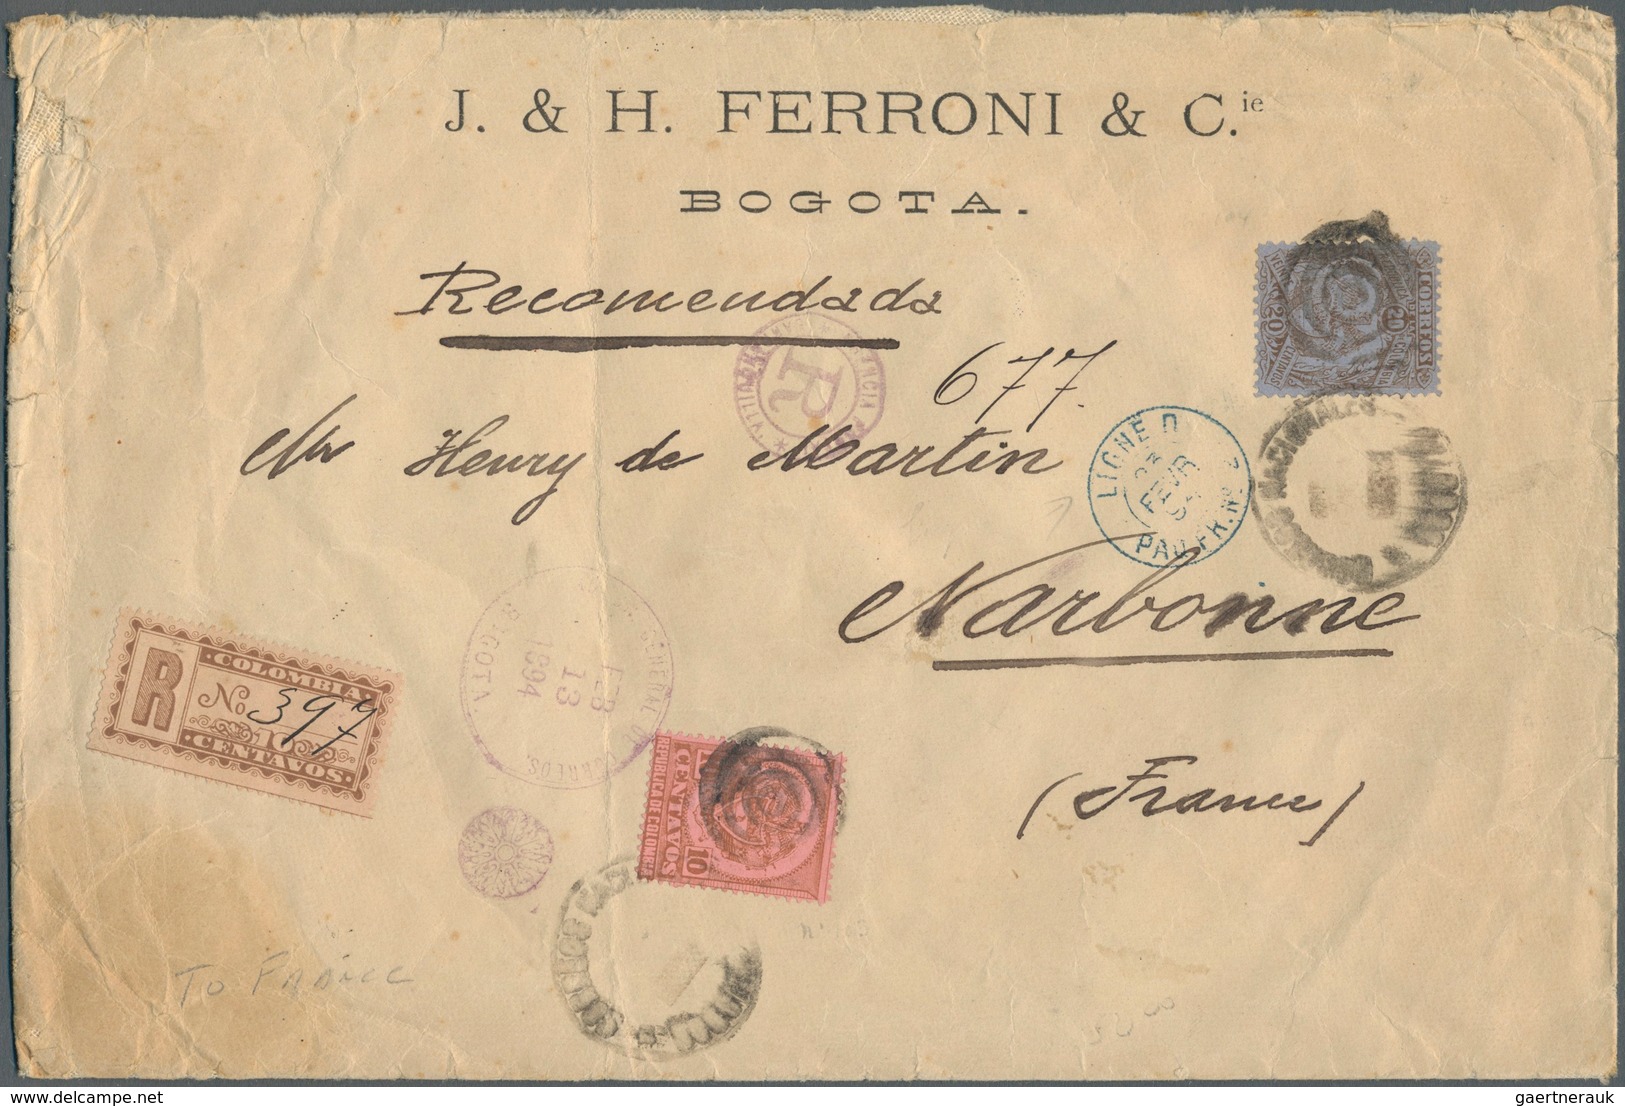 J. & H. FERRONI & C.ie
BOGOTA.
Recomendada
R
677.
Mr Henry de Martin
Narbonne
(France)
CORREOS
20
20
CENTAVOS
LIGNE D
FEVR
PAQ. FR. Nº 2
CORREOS NACIONALES
R
COLOMBIA
No 397
10
CENTAVOS
GENERAL DE CORREOS
FEB
13
1894
BOGOTA
REPUBLICA DE COLOMBIA
CENTAVOS
10
CORREOS
TO FRANCE
gaertnerauk